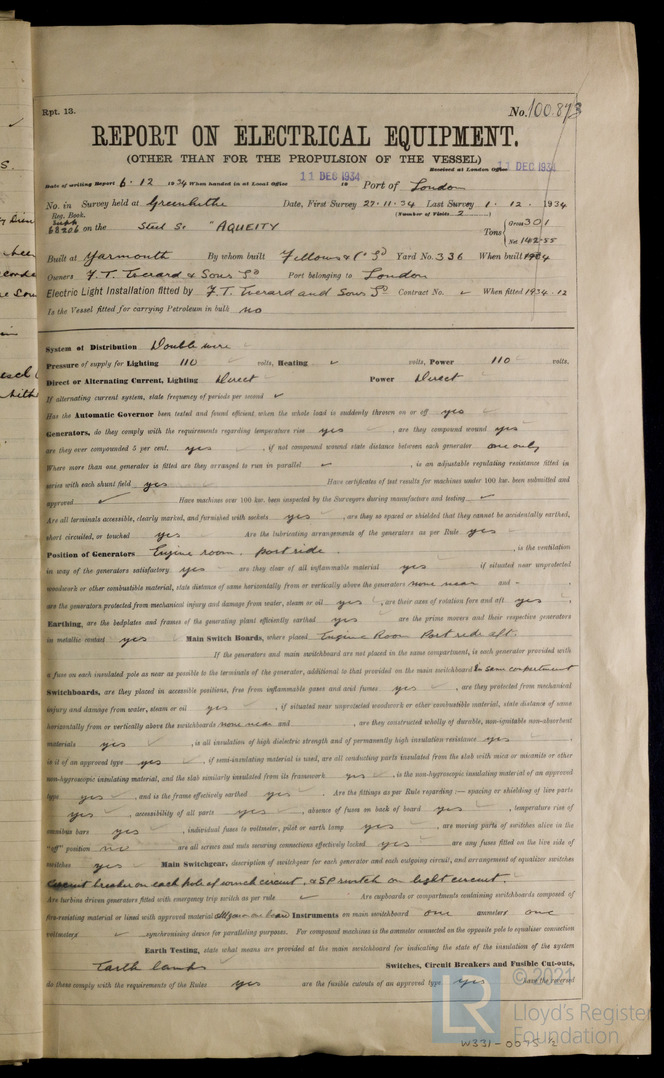 Rpt. 13.
No. 100.873
REPORT ON ELECTRICAL EQUIPMENT.
(OTHER THAN FOR THE PROPULSION OF THE VESSEL)
Received at London Office 11 DEC 1934
Date of writing Report 6. 12 1934 When handed in at Local Office 11 DEC 1934 19 Port of London
No. in Survey held at Greenhithe Date, First Survey 27. 11. 34 Last Survey 1. 12. 1934
Reg. Book. (Number of Visits 2)
68206 on the Steel Sc "AQUEITY" Tons { Gross 301
Net 142.55
Built at Yarmouth By whom built Fellows & Co Ld Yard No. 336 When built 1934
Owners F.T. Everard & Sons Ld Port belonging to London
Electric Light Installation fitted by F.T. Everard and Sons Ld Contract No. When fitted 1934. 12
Is the Vessel fitted for carrying Petroleum in bulk no
System of Distribution Double wire
Pressure of supply for Lighting 110 volts, Heating ✓ volts, Power 110 volts.
Direct or Alternating Current, Lighting Direct Power Direct
If alternating current system, state frequency of periods per second ✓
Has the Automatic Governor been tested and found efficient when the whole load is suddenly thrown on or off yes
Generators, do they comply with the requirements regarding temperature rise yes, are they compound wound yes
are they over compounded 5 per cent. yes, if not compound wound state distance between each generator one only
Where more than one generator is fitted are they arranged to run in parallel ✓, is an adjustable regulating resistance fitted in
series with each shunt field yes Have certificates of test results for machines under 100 kw. been submitted and
approved ✓ Have machines over 100 kw. been inspected by the Surveyors during manufacture and testing ✓
Are all terminals accessible, clearly marked, and furnished with sockets yes, are they so spaced or shielded that they cannot be accidentally earthed,
short circuited, or touched yes Are the lubricating arrangements of the generators as per Rule yes
Position of Generators Engine room. port side, is the ventilation
in way of the generators satisfactory yes are they clear of all inflammable material yes if situated near unprotected
woodwork or other combustible material, state distance of same horizontally from or vertically above the generators none near and -,
are the generators protected from mechanical injury and damage from water, steam or oil yes, are their axes of rotation fore and aft yes,
Earthing, are the bedplates and frames of the generating plant efficiently earthed yes are the prime movers and their respective generators
in metallic contact yes Main Switch Boards, where placed Engine Room Port side aft.
If the generators and main switchboard are not placed in the same compartment, is each generator provided with
a fuse on each insulated pole as near as possible to the terminals of the generator, additional to that provided on the main switchboard In same compartment
Switchboards, are they placed in accessible positions, free from inflammable gases and acid fumes yes, are they protected from mechanical
injury and damage from water, steam or oil yes, if situated near unprotected woodwork or other combustible material, state distance of same
horizontally from or vertically above the switchboards none near and, are they constructed wholly of durable, non-ignitable non-absorbent
materials yes, is all insulation of high dielectric strength and of permanently high insulation resistance yes,
is it of an approved type yes, if semi-insulating material is used, are all conducting parts insulated from the slab with mica or micanite or other
non-hygroscopic insulating material, and the slab similarly insulated from its framework yes, is the non-hygroscopic insulating material of an approved
type yes, and is the frame effectively earthed yes. Are the fittings as per Rule regarding:— spacing or shielding of live parts
yes, accessibility of all parts yes, absence of fuses on back of board yes, temperature rise of
omnibus bars yes, individual fuses to voltmeter, pilot or earth lamp yes, are moving parts of switches alive in the
"off" position no are all screws and nuts securing connections effectively locked yes are any fuses fitted on the live side of
switches yes Main Switchgear, description of switchgear for each generator and each outgoing circuit, and arrangement of equalizer switches
Circuit breaker on each pole of winch circuit, & SP switch on light circuit.
Are turbine driven generators fitted with emergency trip switch as per rule ✓ Are cupboards or compartments containing switchboards composed of
fire-resisting material or lined with approved material Instruments on main switchboard one ammeters one
voltmeters ✓ synchronising device for paralleling purposes. For compound machines is the ammeter connected on the opposite pole to equaliser connection
Earth Testing, state what means are provided at the main switchboard for indicating the state of the insulation of the system
Earth lamps Switches, Circuit Breakers and Fusible Cut-outs,
do these comply with the requirements of the Rules yes are the fusible cutouts of an approved type yes have the reversed
© 2021
LR
Lloyd's Register
Foundation
W331-0075 ½